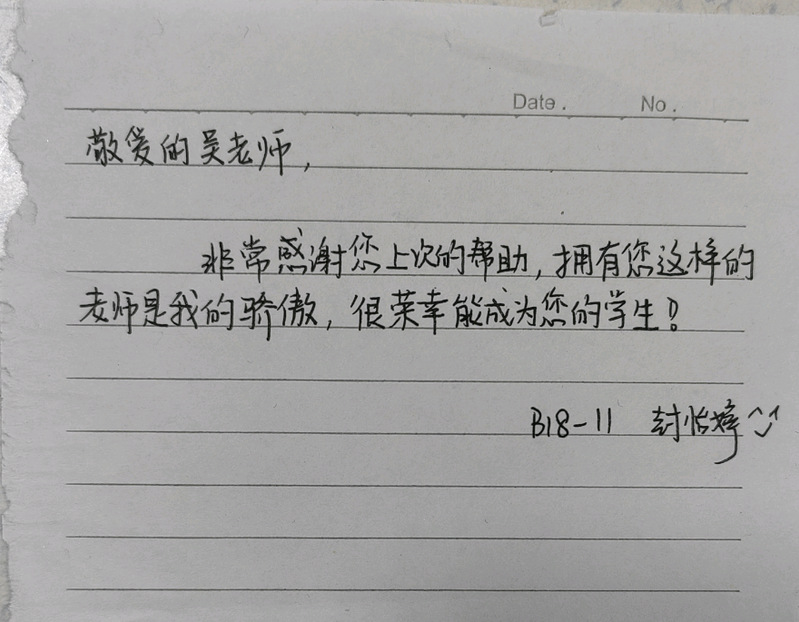 Date. No.
敬爱的吴老师,
非常感谢您上次的帮助,拥有您这样的
老师是我的骄傲,很荣幸能成为您的学生!
B18-11 封怡婷